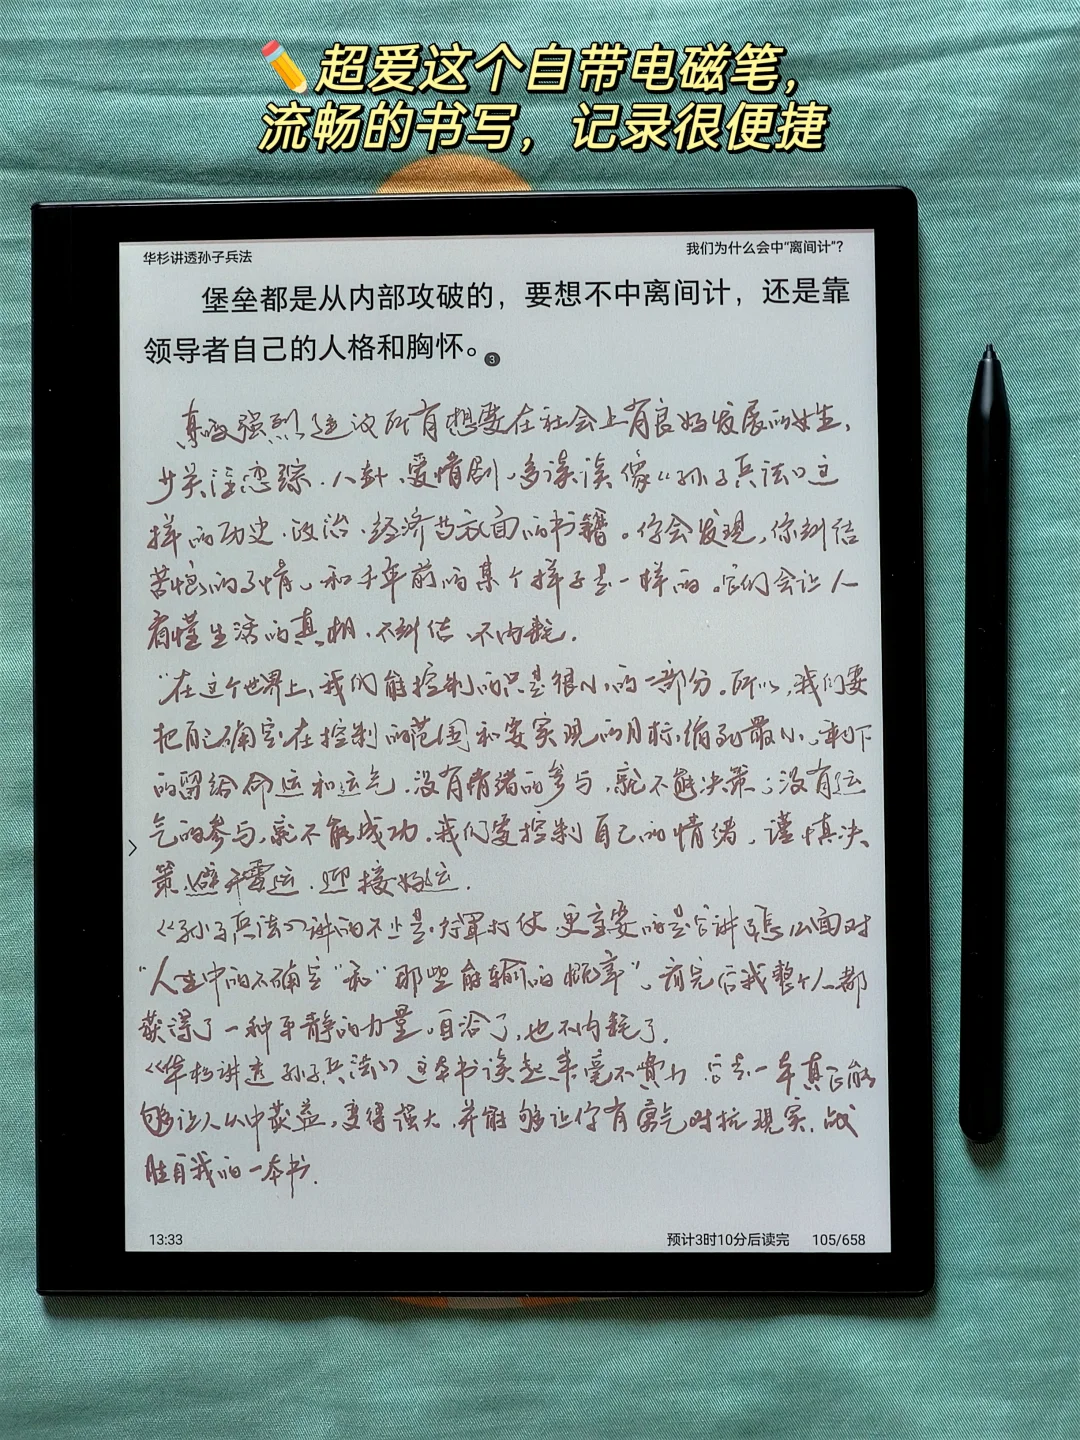 超爱这个自带电磁笔，
流畅的书写，记录很便捷
华杉讲透孙子兵法
我们为什么会中“离间计”？
堡垒都是从内部攻破的，要想不中离间计，还是靠
领导者自己的人格和胸怀。3
真的强烈建议所有想要在社会上有良好发展的女生，
少关注恋综、八卦、爱情剧，多读读像《孙子兵法》这
样的历史、政治、经济等方面的书籍。你会发现，你纠结
苦恼的事情，和千年前的某个样子是一样的。它们会让人
看懂生活的真相，不纠结，不内耗。
“在这个世界上，我们能控制的只是很小的一部分。所以，我们要
把自己确定在控制的范围和要实现的目标，缩到最小，剩下
的留给命运和运气，没有情绪的参与，就不能决策；没有运
气的参与，就不能成功。我们要控制自己的情绪，谨慎决
策，避开霉运，迎接好运。
《孙子兵法》讲的不止是行军打仗，更重要的是它讲了怎么面对
“人生中的不确定”和“那些能输的概率”，看完后我整个人都
获得了一种平静的力量，自洽了，也不内耗了。
《华杉讲透孙子兵法》这本书读起来毫不费力，它是一本真正能
够让人从中获益，变得强大，并能够让你有勇气对抗现实，战
胜自我的一本书。
13:33
预计3时10分后读完 105/658